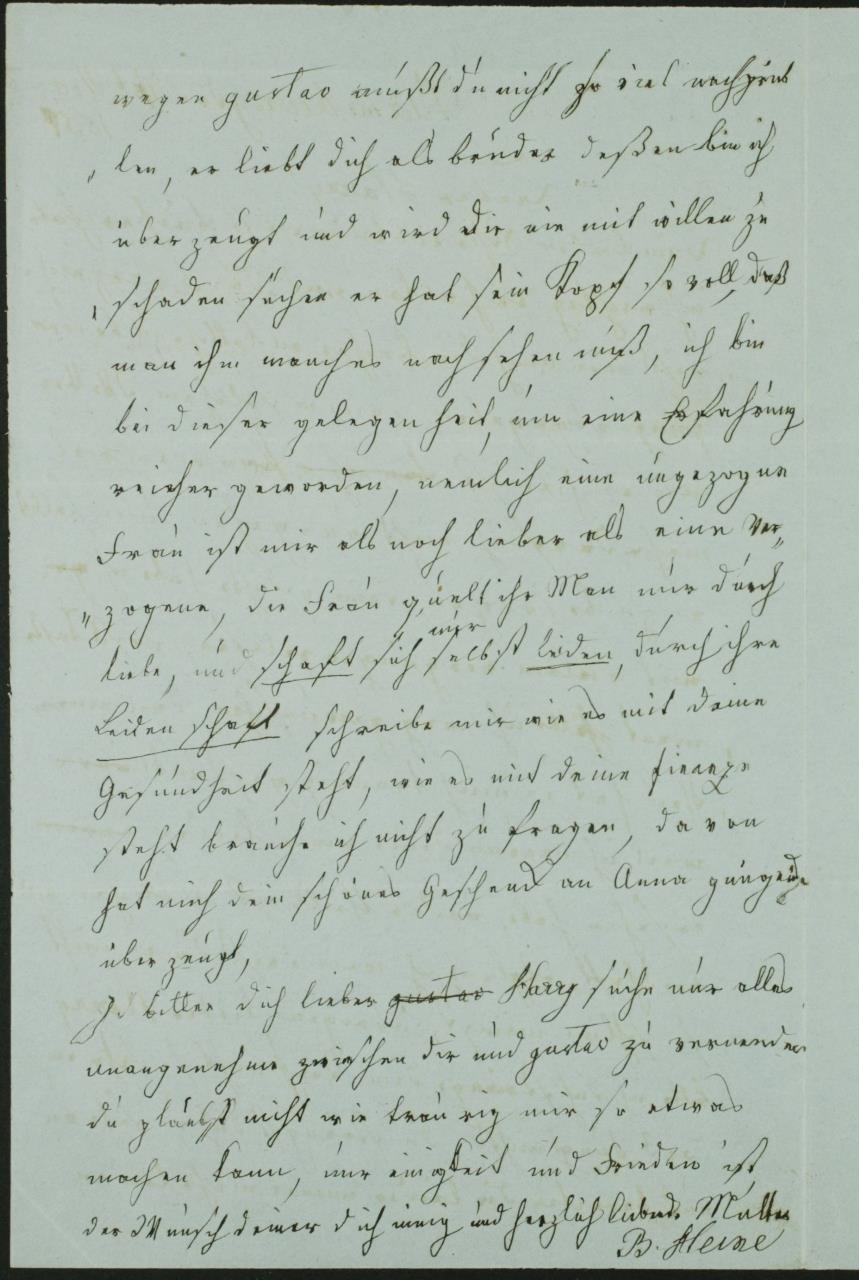 wegen gustav mußt du nicht so viel nachgrüb
„len, er liebt dich als bruder deßen bin ich
überzeugt und wird dir nie mit willen zu
„schaden suchen er hat sein Kopf so voll, daß
man ihm manches nach sehen muß, ich bin
bei dieser gelegenheit, um eine Erfahrung
reicher geworden, nemlich eine ungezogne
Frau ist mir als noch lieber als eine ver„
„zogene, die Frau quält ihr Man nur durch
liebe, und schaft sich nur selbst leiden, durch ihre
Leidenschaft. schreibe mir wie es mit deine
Gesundheit steht, wie es mit deine finanze
steht brauche ich nicht zu fragen, da von
hat mich dein schönes Geschenck an Anna
überzeugt,
Ich bitten dich lieber gustav Harry suche nur alles
unangenehme zwischen dir und gustav zu vermeiden
du glaubst nicht wie traurig mir so etwas
machen kann, nur einigkeit und Frieden ist
der Wunsch deiner dich innig und herzlich liebende Mutter
B. Heine